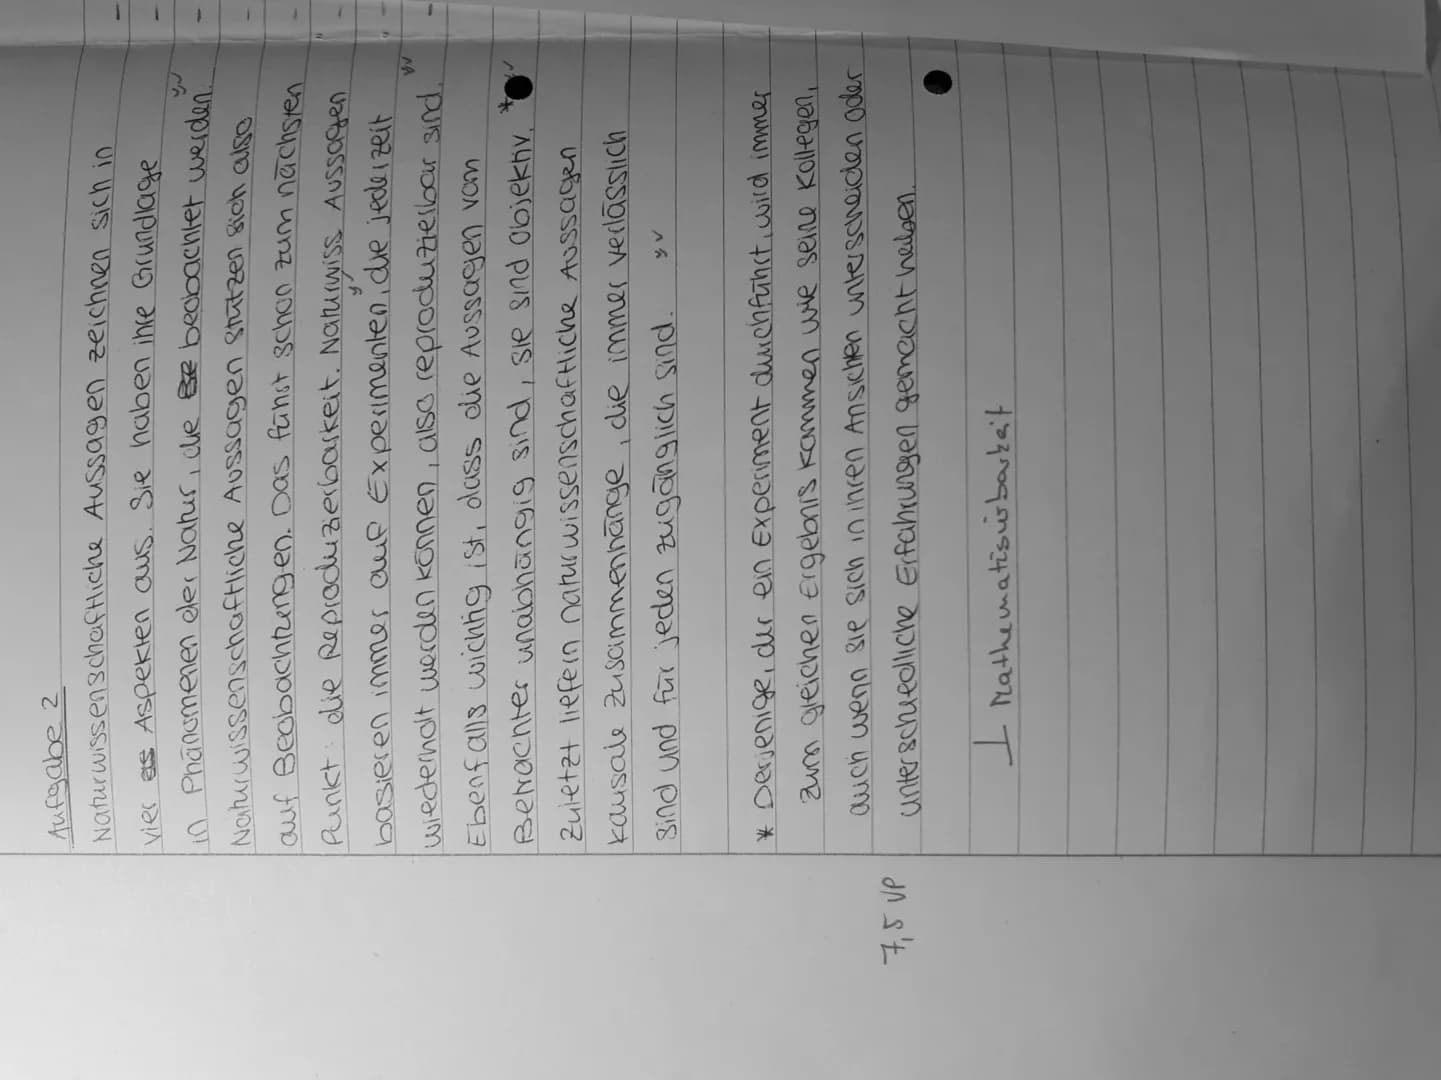 Aufgabe 2
Naturwissenschaftliche Aussagen zeichnen sich in
vier Aspekten aus. Sie haben ihre Grundlage
in Phänomenen der Natur, die beobachtet werden.
Naturwissenschaftliche Aussagen stützen sich also
auf Beobachtungen. Das führt schon zum nächsten
Punkt: die Reproduzierbarkeit. Naturwiss Aussagen
basieren immer auf Experimenten, die jederzeit
wiederholt werden können, also reproduzierbar sind.
Ebenfalls wichtig ist, dass die Aussagen vom
Betrachter unabhängig sind, sie sind objektiv. *
Zuletzt liefern naturwissenschaftliche Aussagen
kausale Zusammenhänge, die immer verlässlich
sind und für jeden zugänglich sind.
* Derjenige, der ein Experiment durchführt, wird immer
zum gleichen Ergebnis kommen wie seine Kollegen,
auch wenn sie sich in ihren Ansichten unterscheiden oder
unterschiedliche Erfahrungen gemacht haben.
7,5 VP
Mathematisierbarkeit